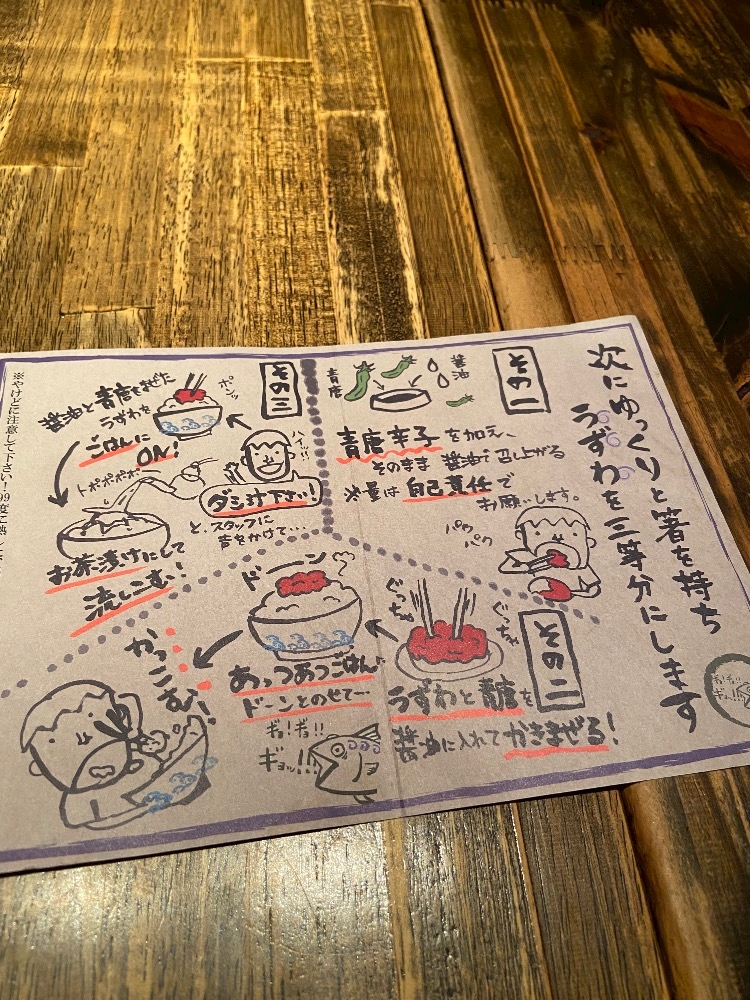 次にゆっくりと箸を持ち
うずわを三等分にします
その一
青唐
醤油
青唐辛子を加え、
そのまま醤油で召上がる
※量は自己責任で
お願いします。
パク
パク
その二
ぐっちゃ
ぐっちゃ
うずわと青唐を
醤油に入れてかきまぜる!
ドーン
あっつあつごはんに
ドーンとのせて…
ギョ!ギョ!!
ギョッ!!!
かっこむ!
その三
醤油と青唐をまぜた
うずわを
ごはんに
ON!
ポンッ
ハイッ!!
ダシ汁下さい!
と、スタッフに
声をかけて…
トポポポポ…
お茶漬けにして
流しこむ!
※やけどに注意して下さい!